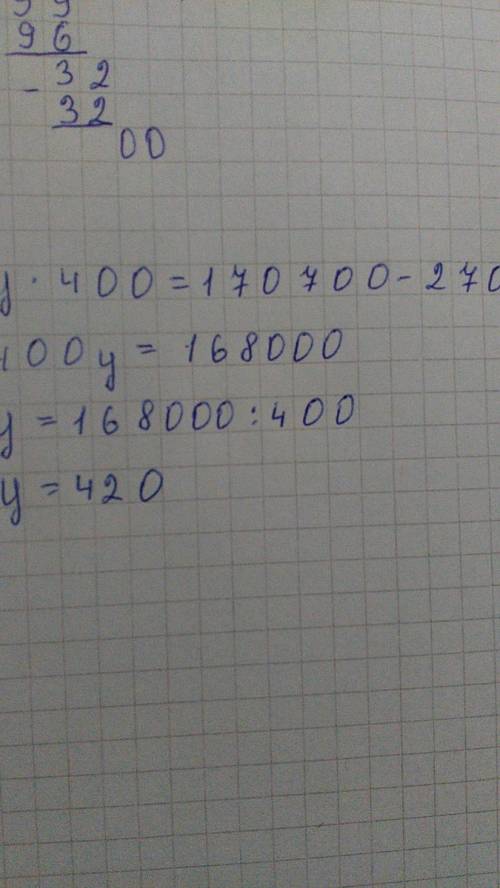 96
- 32
32
00
y · 400 = 170700 - 270
400y = 168000
y = 168000 : 400
y = 420